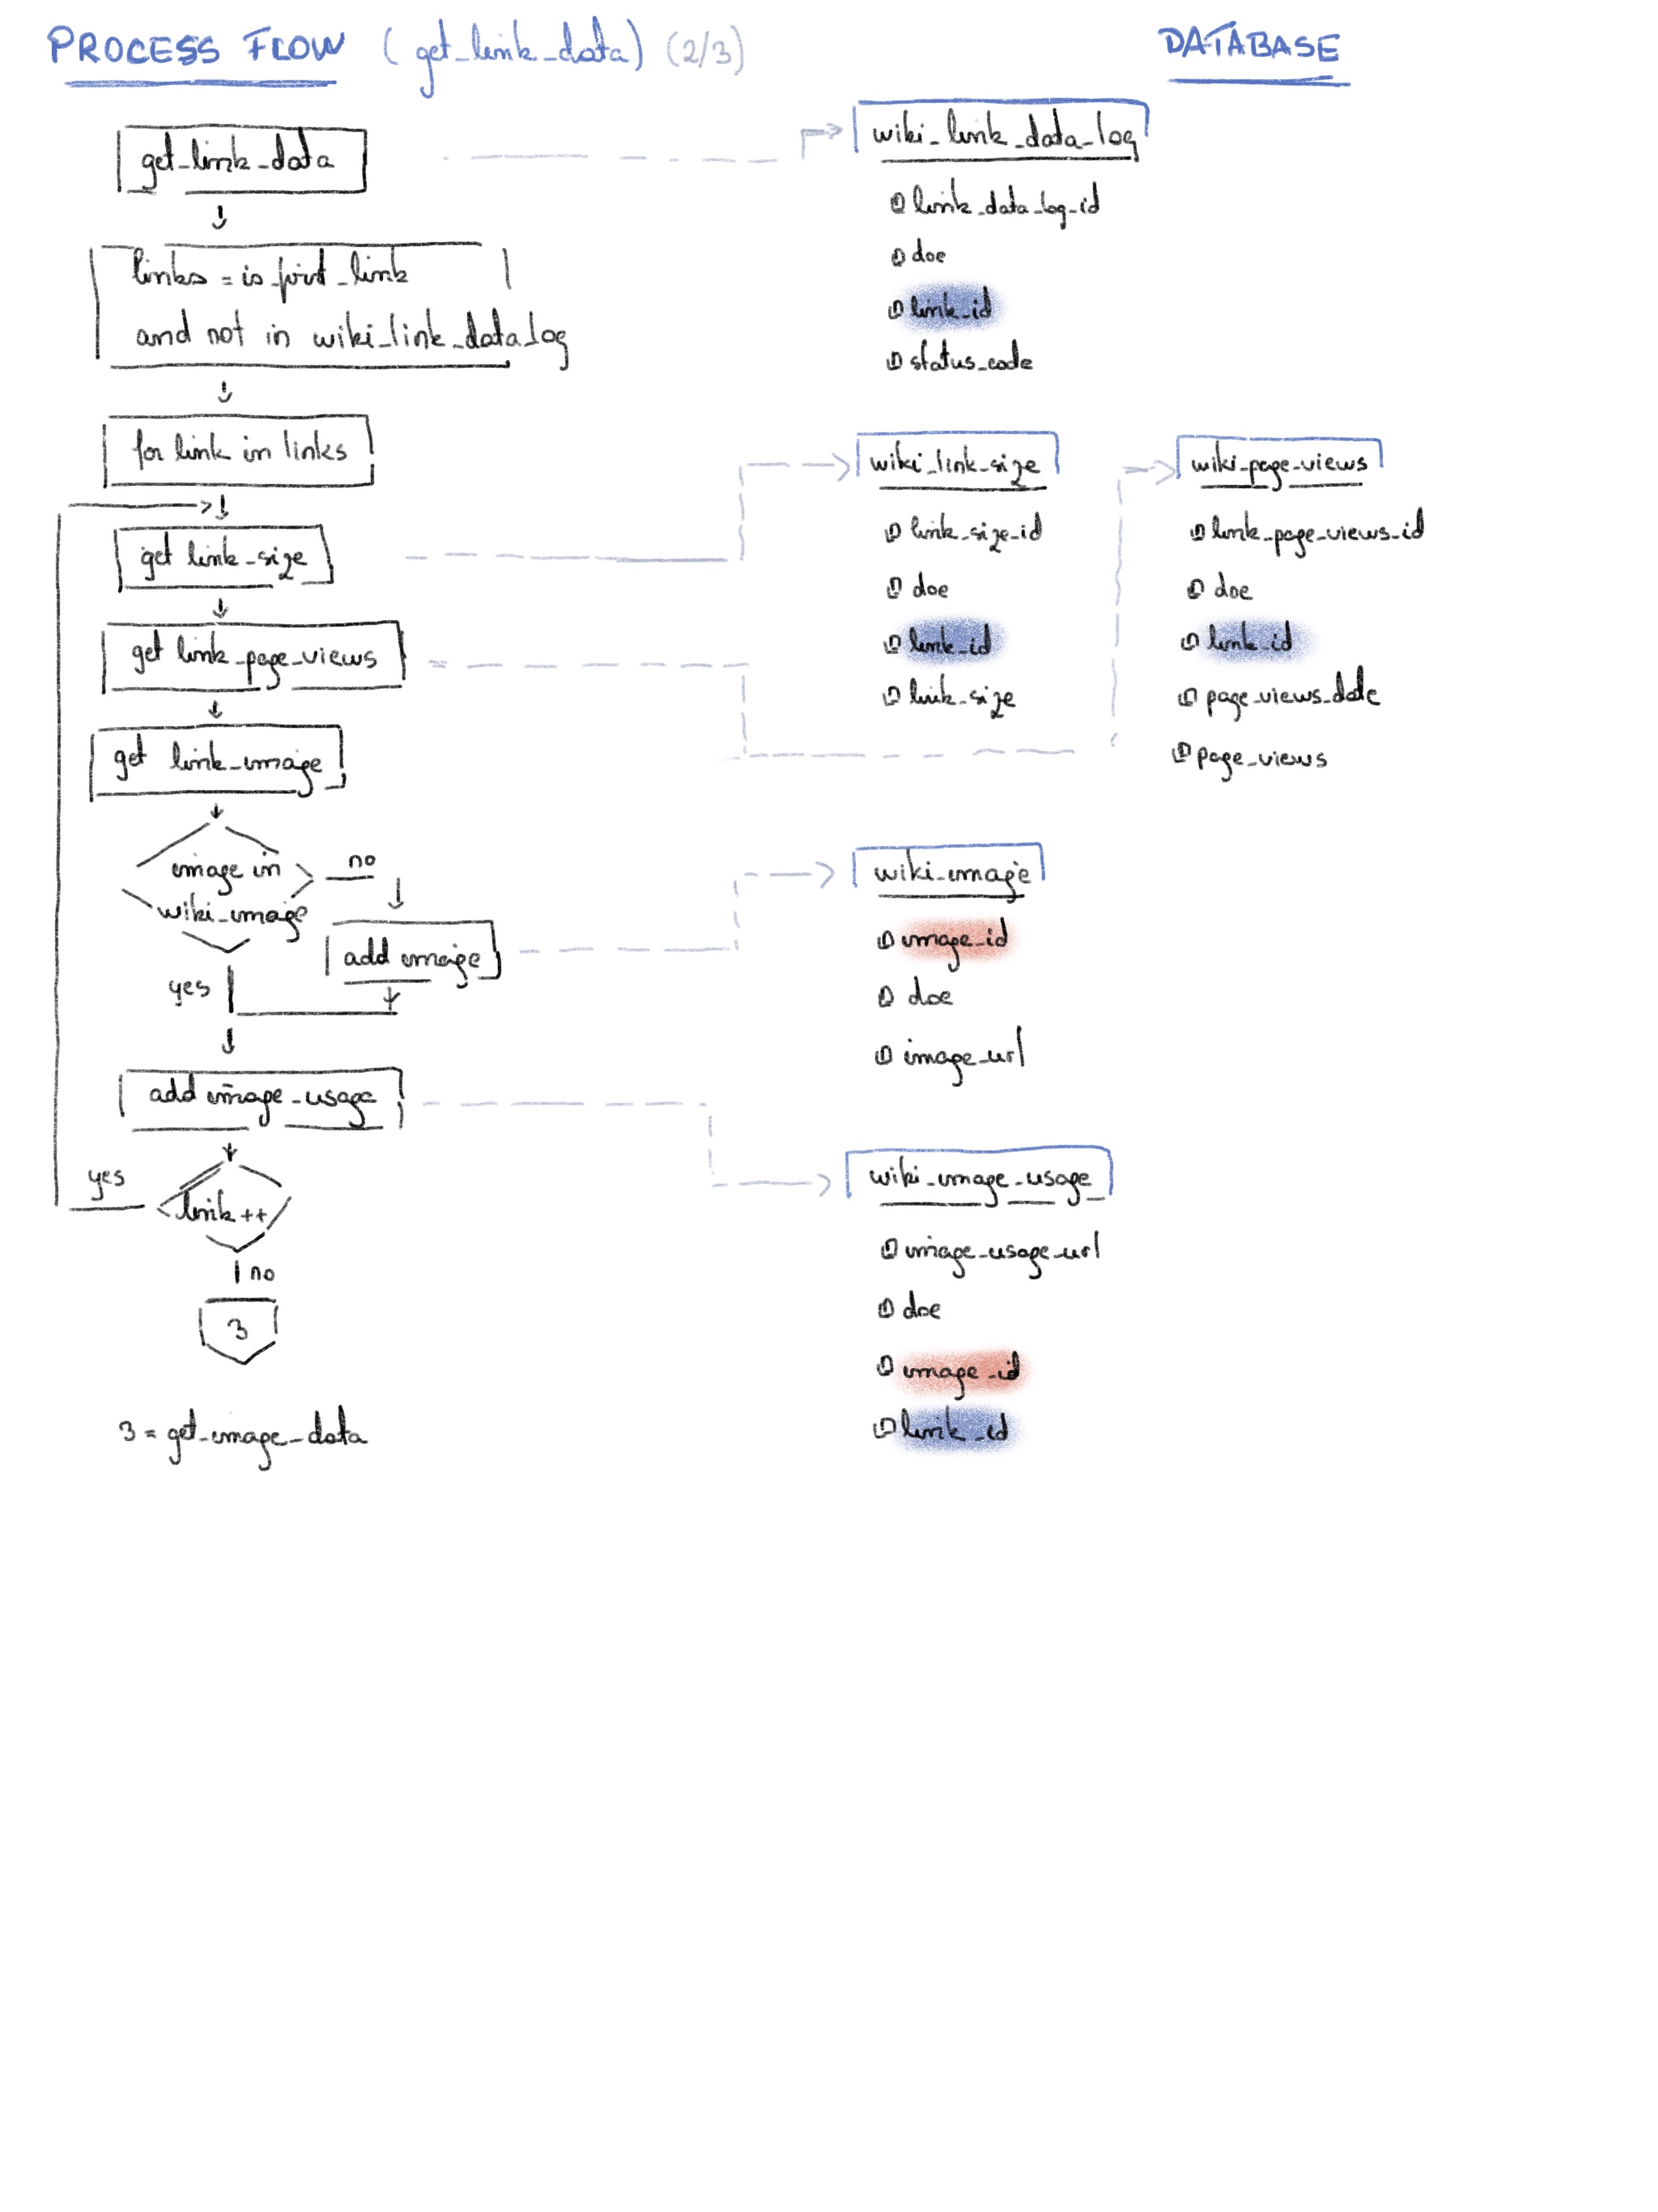 PROCESS FLOW (get_link_data) (2/3)
DATABASE
get_link_data
links = is_first_link
and not in wiki_link_data_log
for link in links
get link_size
get link_page_views
get link_image
image in
wiki_image
no
add image
yes
add image_usage
link ++
yes
no
3
3 = get_image_data
wiki_link_data_log
link_data_log_id
doe
link_id
status_code
wiki_link_size
link_size_id
doe
link_id
link_size
wiki_page_views
link_page_views_id
doe
link_id
page_views_date
page_views
wiki_image
image_id
doe
image_url
wiki_image_usage
image_usage_url
doe
image_id
link_id